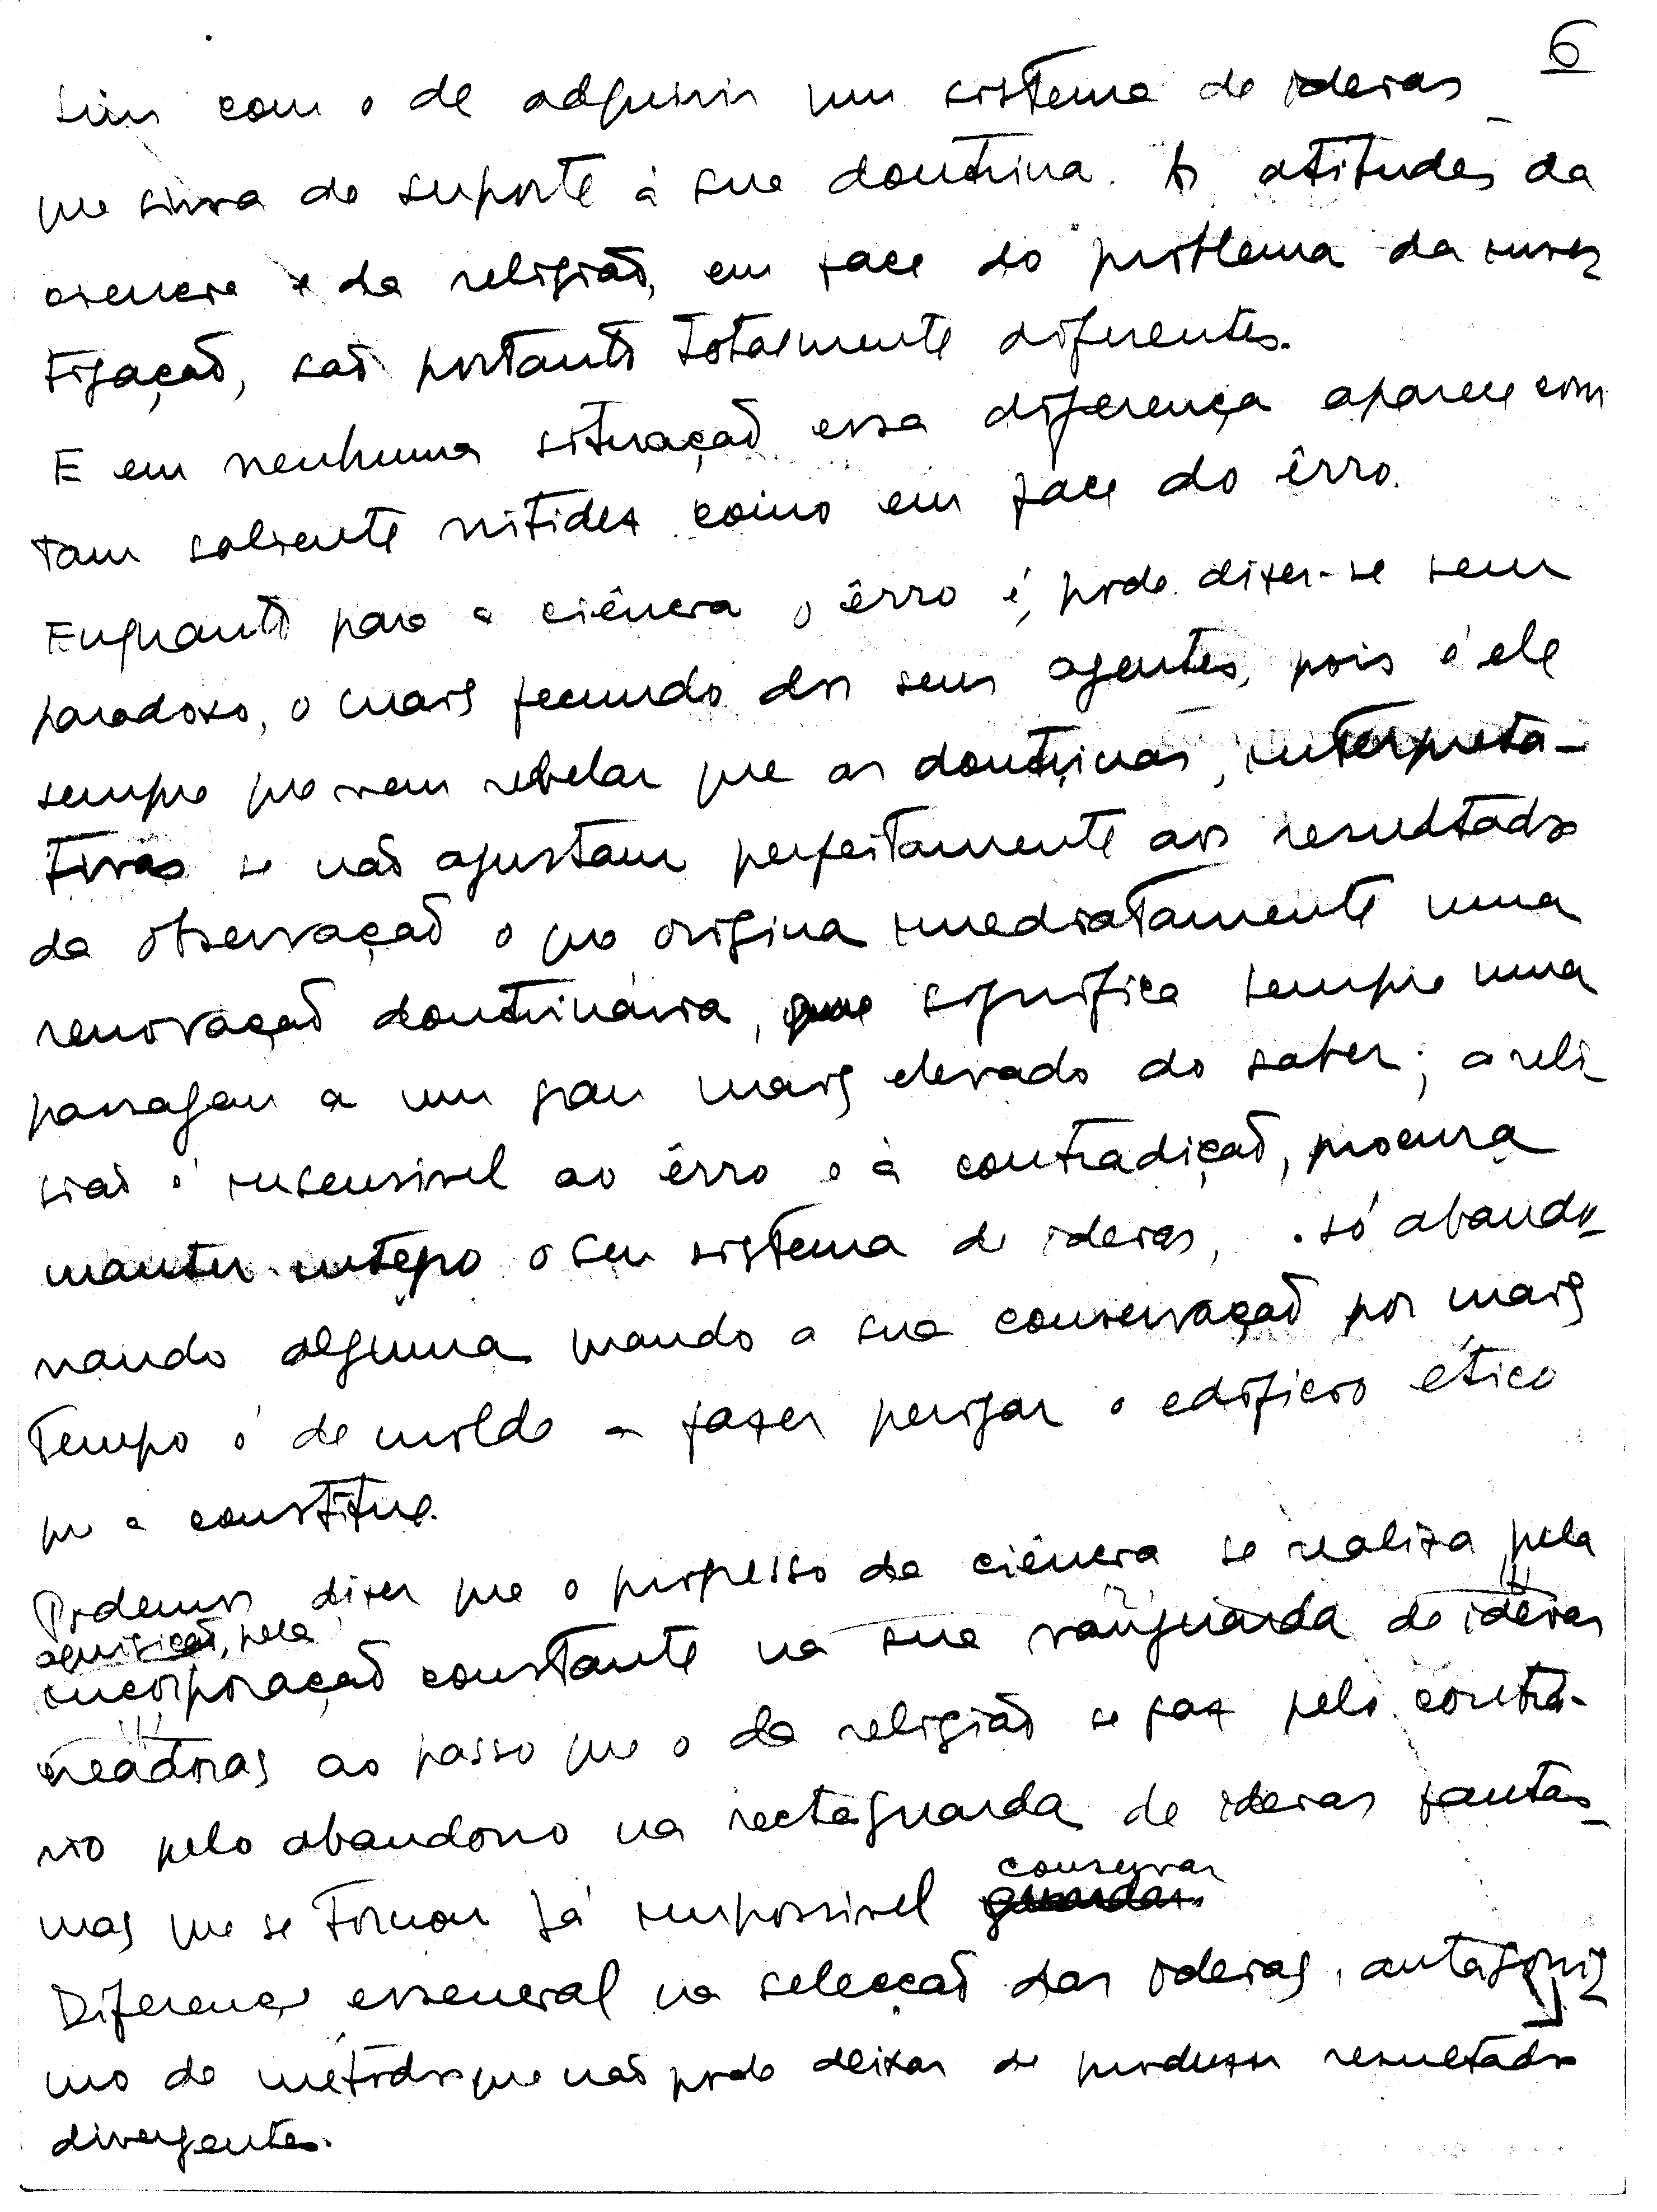 6
sim com o de adquirir um sistema de ideias
que sirva de suporte à sua doutrina. As atitudes da
ciencia e da religiaõ, em face do problema da inves
tigaçaõ, saõ portanto totalmente diferentes.
E em nenhuma situaçaõ essa diferença aparece com
tam saliente nitidez como em face do êrro.
Enquanto para a ciência o êrro é, pode dizer-se sem
paradoxo, o mais fecundo dos seus agentes, pois é ele
sempre que vem rebelar que as doutrinas interpreta-
tivas se naõ ajustam perfeitamente aos resultados
da observaçaõ o que origina imediatamente uma
renovaçaõ doutrinária, que significa sempre uma
passagem a um grau mais elevado do saber; a reli
giaõ é insensivel ao êrro e à contradiçaõ, procura
manter integro o seu sistema de ideias, só abando
nando alguma quando a sua conservaçaõ por mais
tempo é de molde a fazer perigar o edificio ético
que a constitue.
Podemos dizer que o progresso da ciência se realiza pela
aquisiçaõ, pela
incorporaçaõ constante na sua vanguarda de ideias
creadoras ao passo que o da religiaõ se faz pelo contrá-
rio pelo abandono na rectaguarda de ideias fantas
mas que se tornou já impossivel conservar
guardar.
Diferença essencial na selecçaõ das ideias, antagonis
mo de métodos que naõ pode deixar de produzir resultados
divergentes.